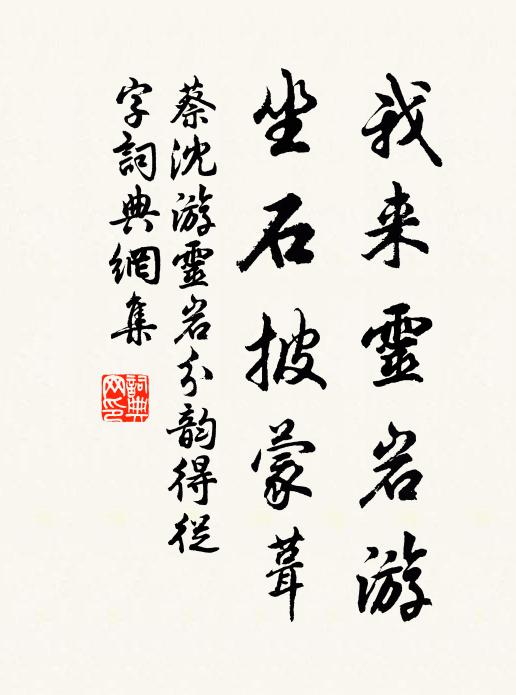 我来靈岩游
坐石披蒙葺
蔡沈游靈岩分韵得從
字詞典網集
詞典網印